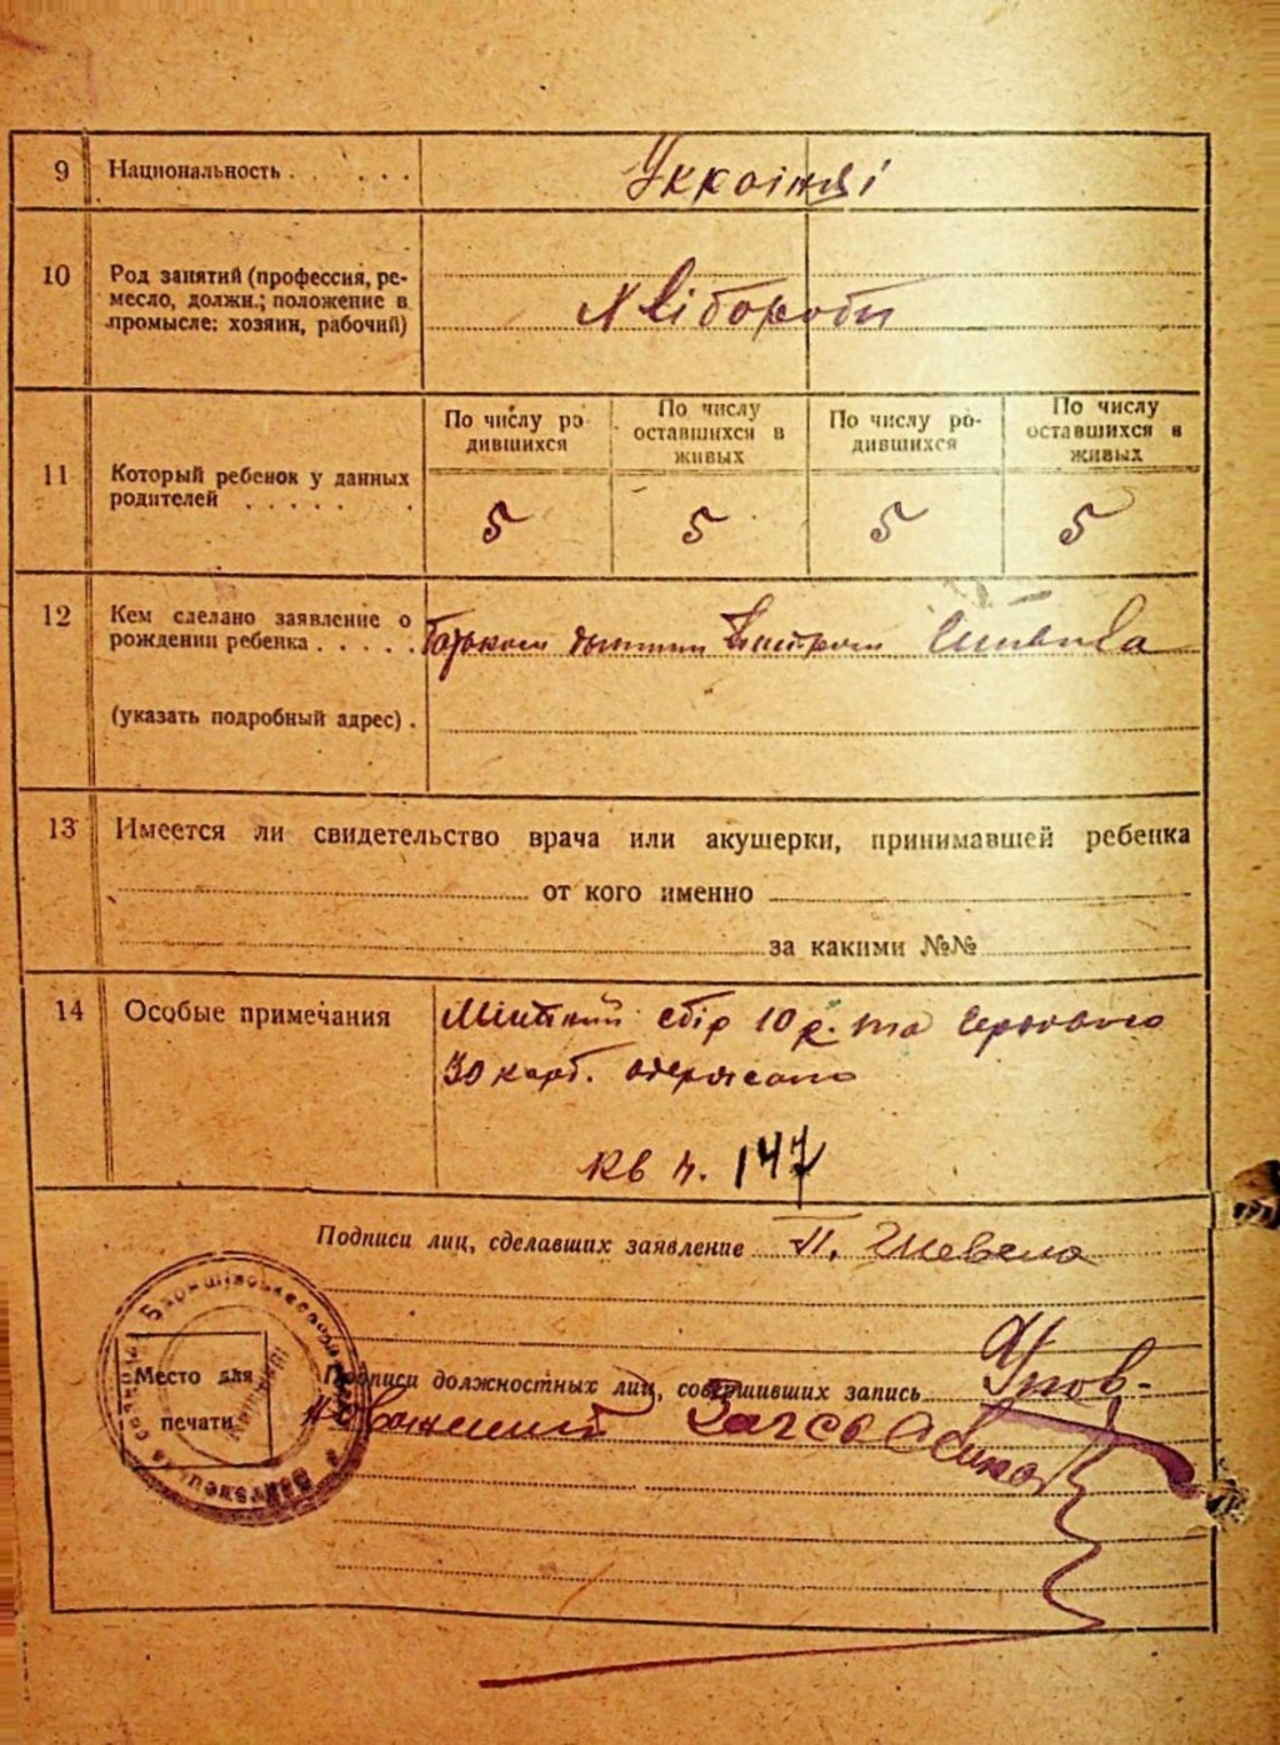 9 Национальность . . . . . Українці
10 Род занятий (профессия, ре-
месло, должн.; положение в
промысле: хозяин, рабочий)
Хлібороби
По числу ро-
дившихся
По числу
оставшихся в
живых
По числу ро-
дившихся
По числу
оставшихся в
живых
11 Который ребенок у данных
родителей . . . . . .
5 5 5 5
12 Кем сделано заявление о
рождении ребенка . . . . .
батьком
(указать подробный адрес) .
13 Имеется ли свидетельство врача или акушерки, принимавшей ребенка
от кого именно
за какими №№
14 Особые примечания
збір 10 к. та
30 карб. одержано
кв н. 147
Подписи лиц, сделавших заявление П. Шевела
Место для
печати
Подписи должностных лиц, совершивших запись Упов-
новажений Загса